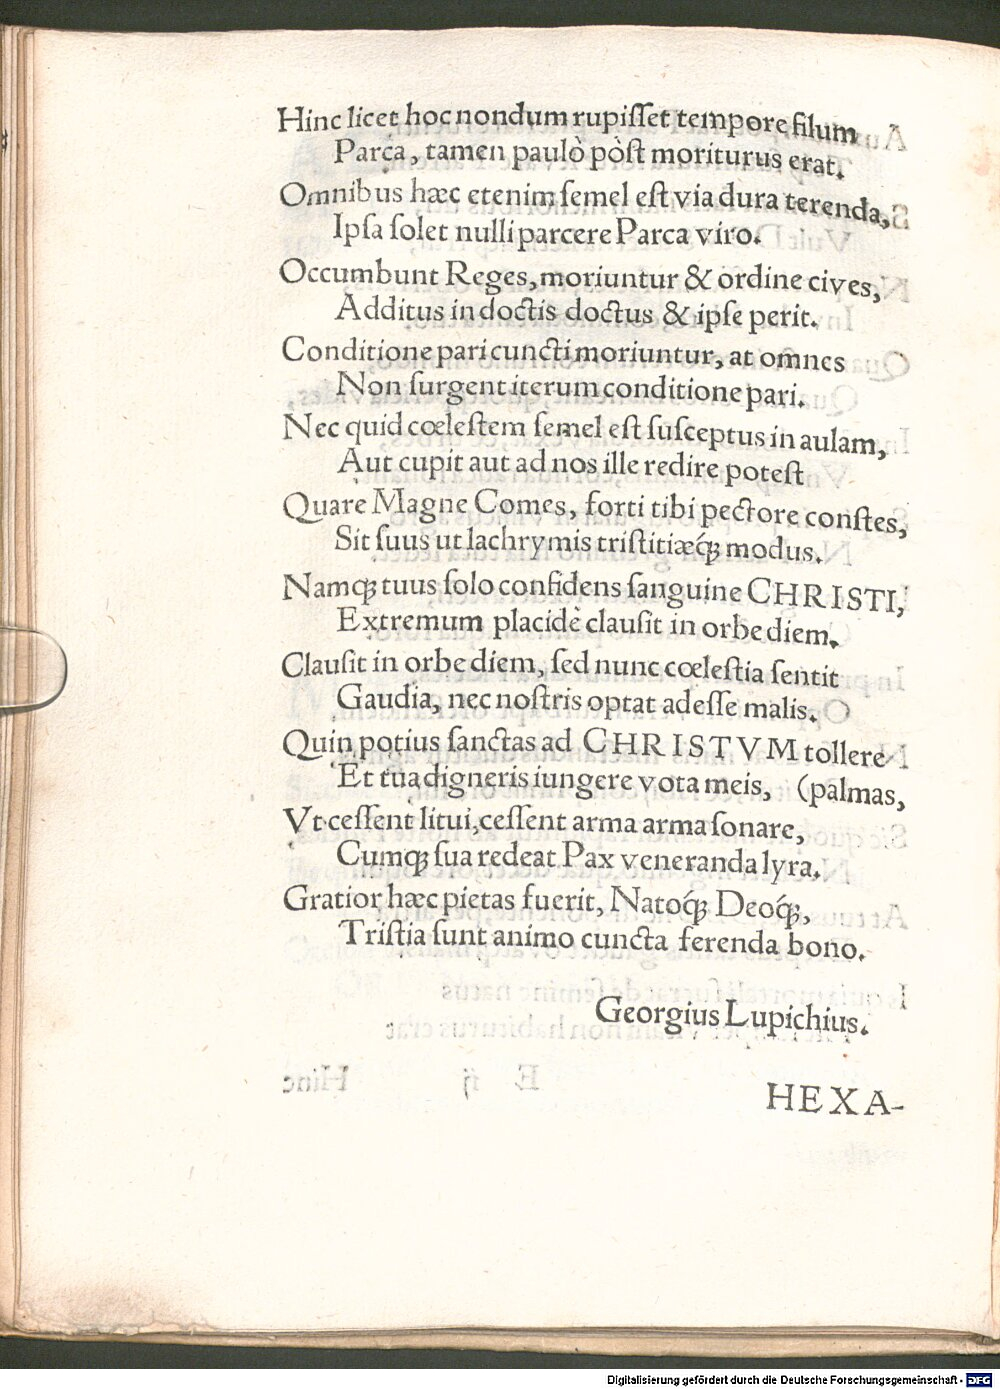 Hinc licet hoc nondum rupiſſet tempore filum
Parca, tamen paulò pòſt moriturus erat.
Omnibus hæc etenim ſemel eſt via dura terenda,
Ipſa ſolet nulli parcere Parca viro.
Occumbunt Reges, moriuntur & ordine cives,
Additus in doctis doctus & ipſe perit.
Conditione pari cuncti moriuntur, at omnes
Non ſurgent iterum conditione pari.
Nec quid cœleſtem ſemel eſt ſuſceptus in aulam,
Aut cupit aut ad nos ille redire poteſt
Quare Magne Comes, forti tibi pectore conſtes,
Sit ſuus ut lachrymis triſtitiæq́ꝫ modus.
Namqꝫ tuus ſolo confidens ſanguine CHRISTI,
Extremum placidè clauſit in orbe diem.
Clauſit in orbe diem, ſed nunc cœleſtia ſentit
Gaudia, nec noſtris optat adeſſe malis.
Quin potius ſanctas ad CHRISTVM tollere
Et tua digneris iungere vota meis, (palmas,
Vt ceſſent litui, ceſſent arma arma ſonare,
Cumqꝫ ſua redeat Pax veneranda lyra.
Gratior hæc pietas fuerit, Natoq́ꝫ Deoq́ꝫ,
Triſtia ſunt animo cuncta ferenda bono.
Georgius Lupichius.
HEXA-
Digitalisierung gefördert durch die Deutsche Forschungsgemeinschaft - DFG